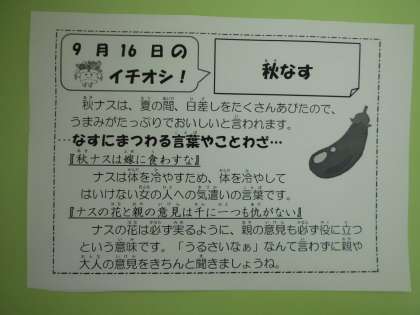 9月16日の
イチオシ！
秋なす
秋ナスは、夏の間、日差しをたくさんあびたので、
うまみがたっぷりでおいしいと言われます。
…なすにまつわる言葉やことわざ…
『秋ナスは嫁に食わすな』
ナスは体を冷やすため、体を冷やして
はいけない女の人への気遣いの言葉です。
『ナスの花と親の意見は千に一つも仇がない』
ナスの花は必ず実るように、親の意見も必ず役に立つ
という意味です。「うるさいなぁ」なんて言わずに親や
大人の意見をきちんと聞きましょうね。